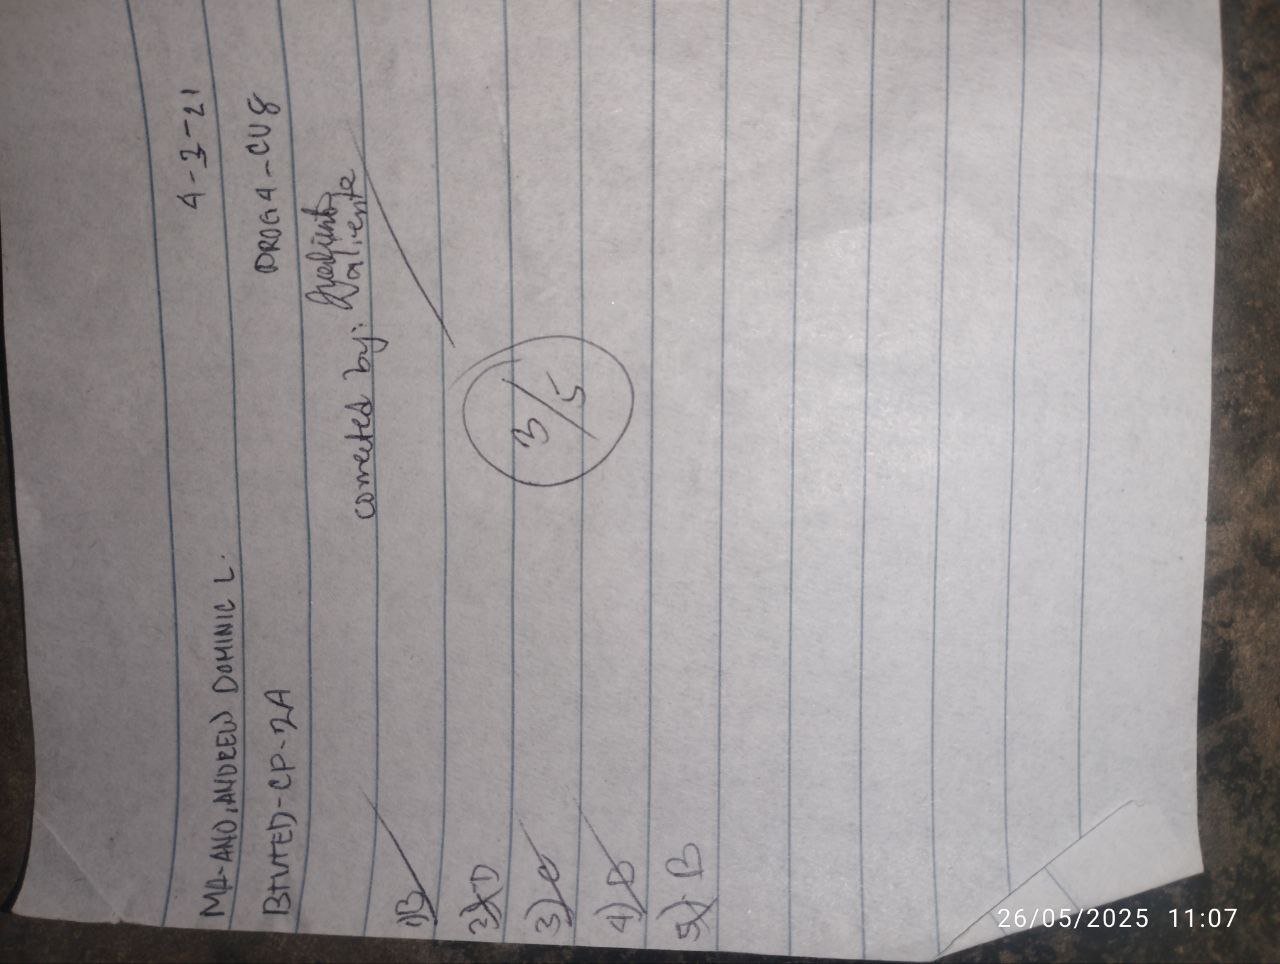 4-3-21
MA-ANO, ANDREW DOMINIC L.
BTVTED-CP-2A
PROG4-CU8
corrected by: Valiente
1) B
2) D
3) C
4) B
5) B
3/5
26/05/2025 11:07